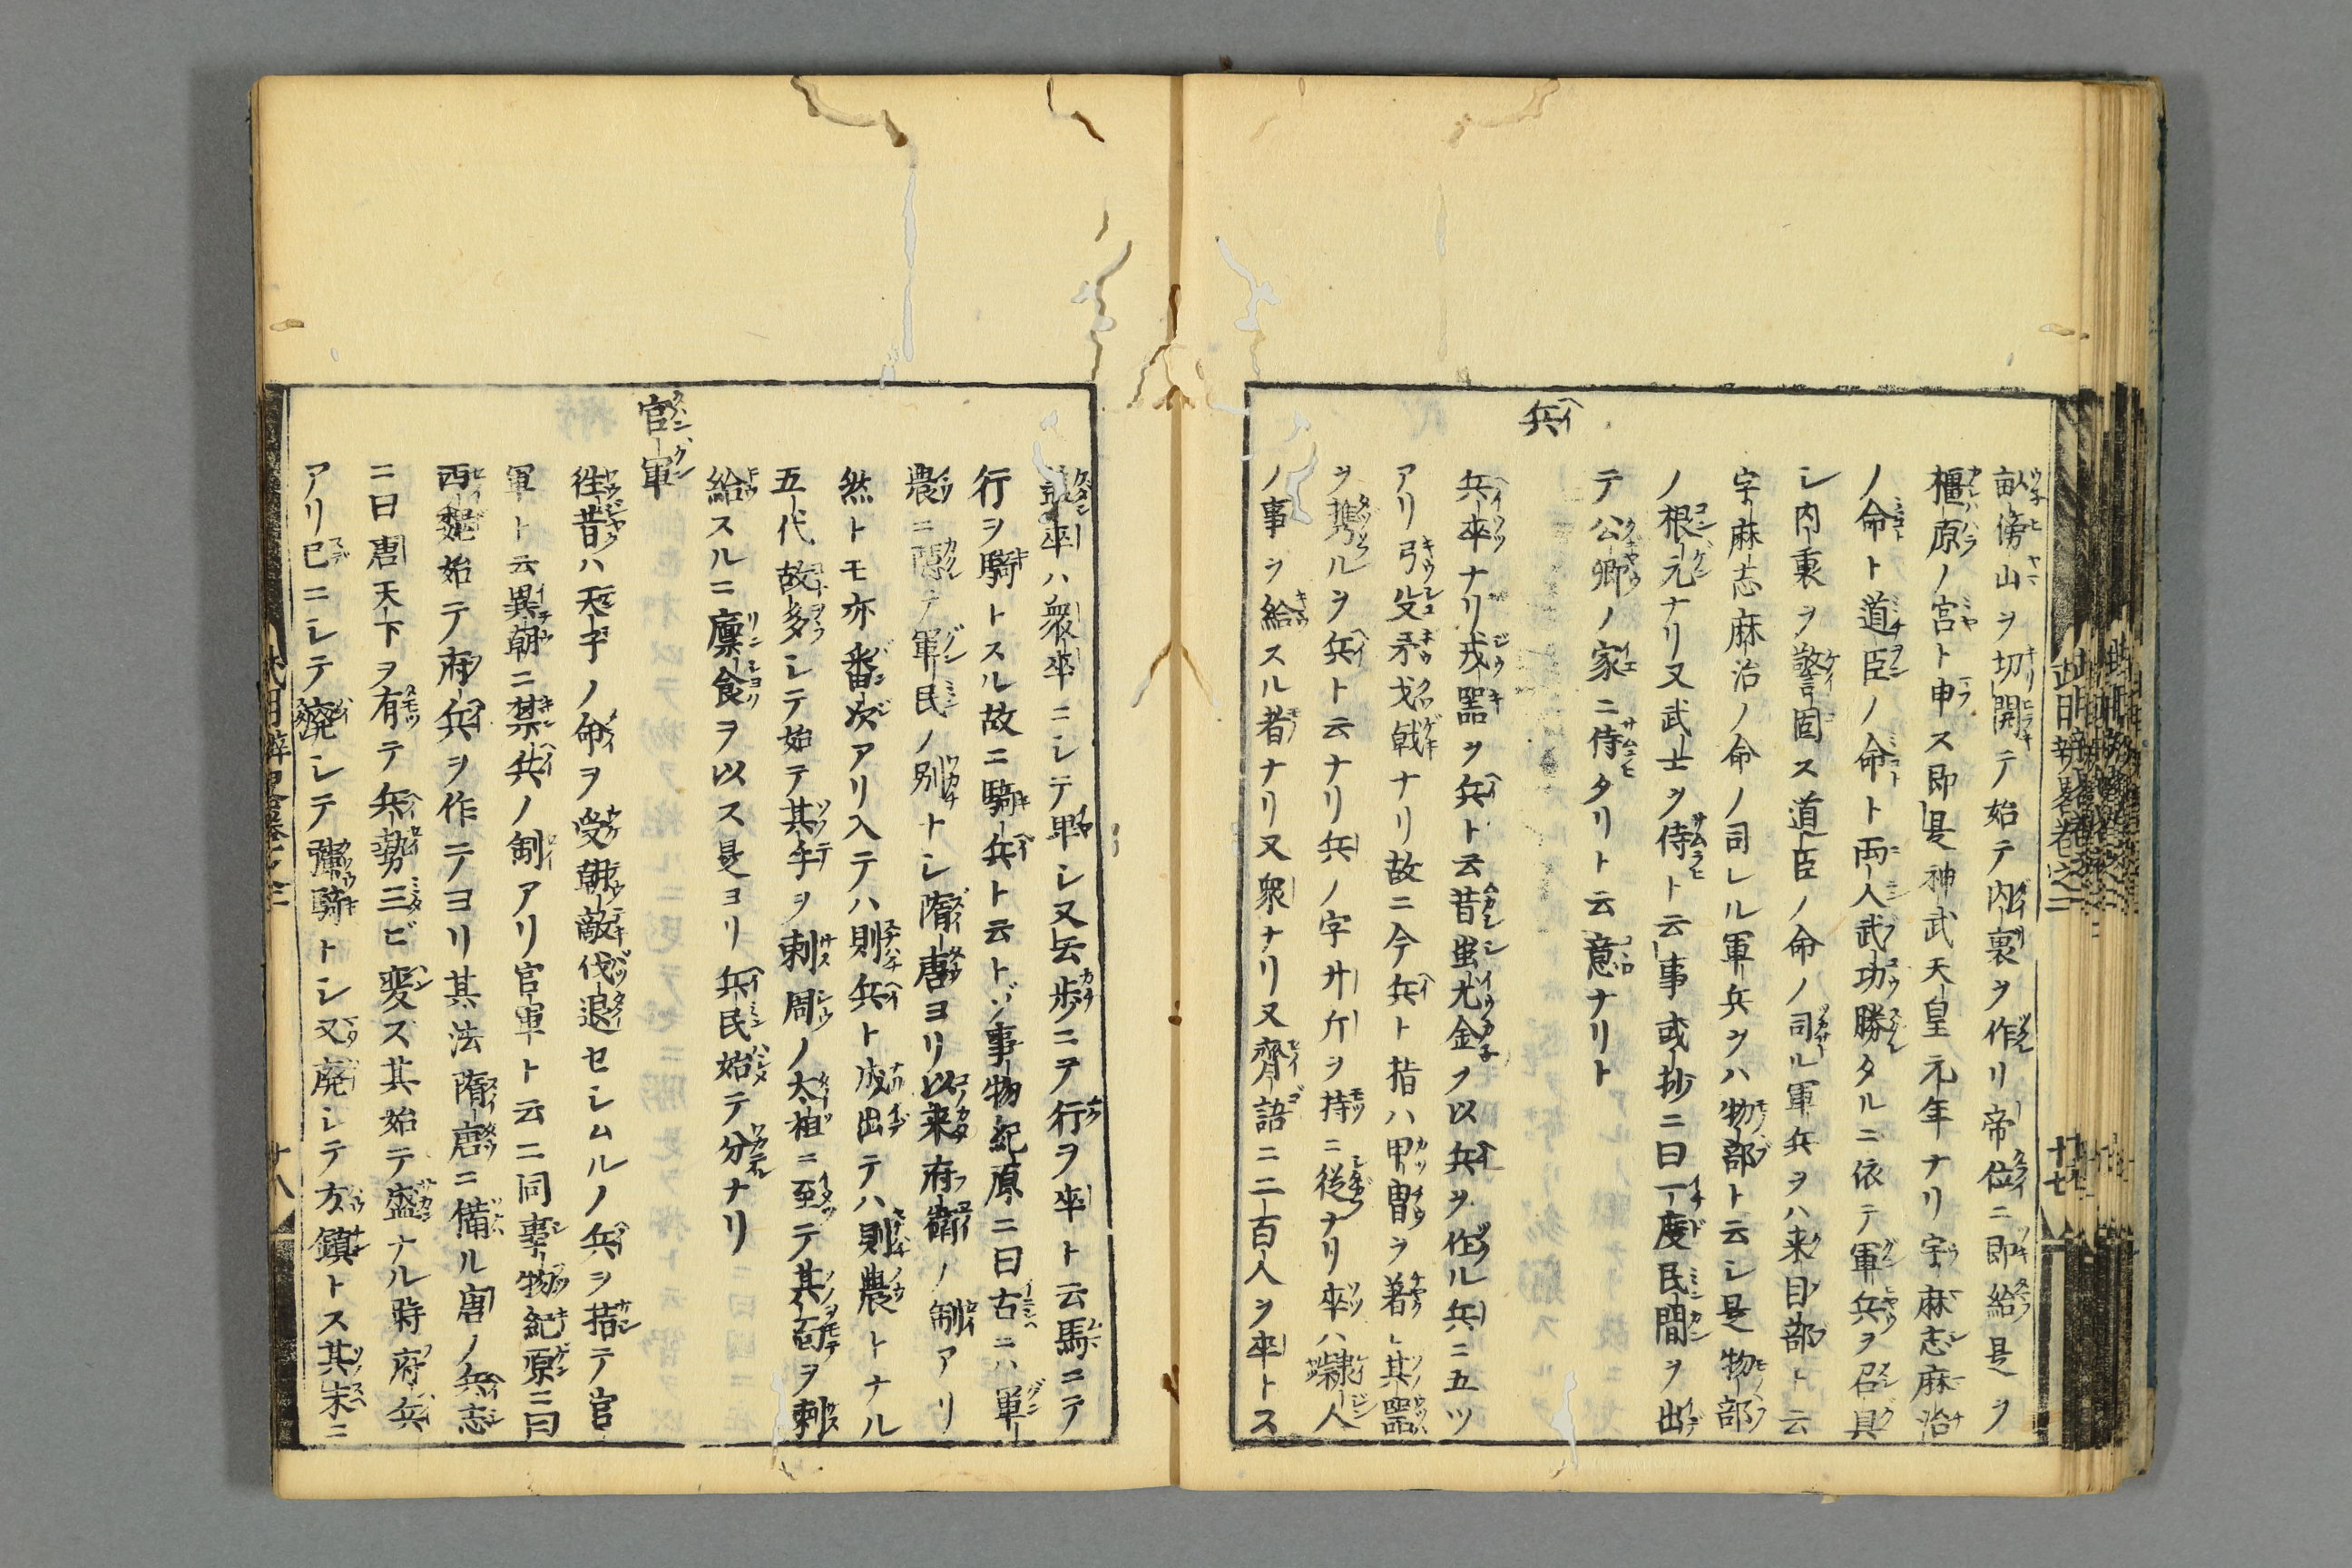 畝傍山ヲ切開テ始テ内裏ヲ作リ帝位ニ即給是ヲ
橿原ノ宮ト申ス即是神武天皇元年ナリ宇麻志麻治
ノ命ト道臣ノ命ト両人武功勝タルニ依テ軍兵ヲ召具
シ内裏ヲ警固ス道臣ノ命ノ司ル軍兵ヲハ来目部ト云
宇麻志麻治ノ命ノ司レル軍兵ヲハ物部ト云シ是物部
ノ根元ナリ又武士ヲ侍ト云事或抄ニ曰一度民間ヲ出
テ公卿ノ家ニ侍タリト云意ナリト
兵
兵卒ナリ戎器ヲ兵ト云昔蚩尤金ヲ以兵ヲ作ル兵ニ五ツ
アリ弓殳矛戈戟ナリ故ニ今兵ト指ハ甲冑ヲ著シ其器
ヲ携ルヲ兵ト云ナリ兵ノ字廾斤ヲ持ニ従ナリ卒ハ隷人
ノ事ヲ給スル者ナリ又衆ナリ又齊語ニ二百人ヲ卒トス
卒ハ衆卒ニシテ甲シ又云歩ニテ行ヲ卒ト云馬ニテ
行ヲ騎トスル故ニ騎兵ト云トゾ事物紀原ニ曰古ニハ軍
農ニ隠テ軍民ノ別ナトシ隋唐ヨリ以来府衛ノ制アリ
然トモ亦番次アリ入テハ則兵ト成出テハ則農トナル
五代故多シテ始テ其手ヲ刺周ノ太祖ニ至テ其面ヲ刺
給スルニ廩食ヲ以ス是ヨリ兵民始テ分ナリ
官軍
往昔ハ天子ノ命ヲ受朝敵伐退セシムルノ兵ヲ指テ官
軍ト云異朝ニ禁兵ノ制アリ官軍ト云ニ同事物紀原ニ曰
西魏始テ府兵ヲ作テヨリ其法隋唐ニ備ル唐ノ兵志
ニ曰唐天下ヲ有テ兵勢三ビ変ス其始テ盛ナル時府兵
アリ已ニシテ廃シテ彍騎トシ又廃シテ方鎮トス其末ニ